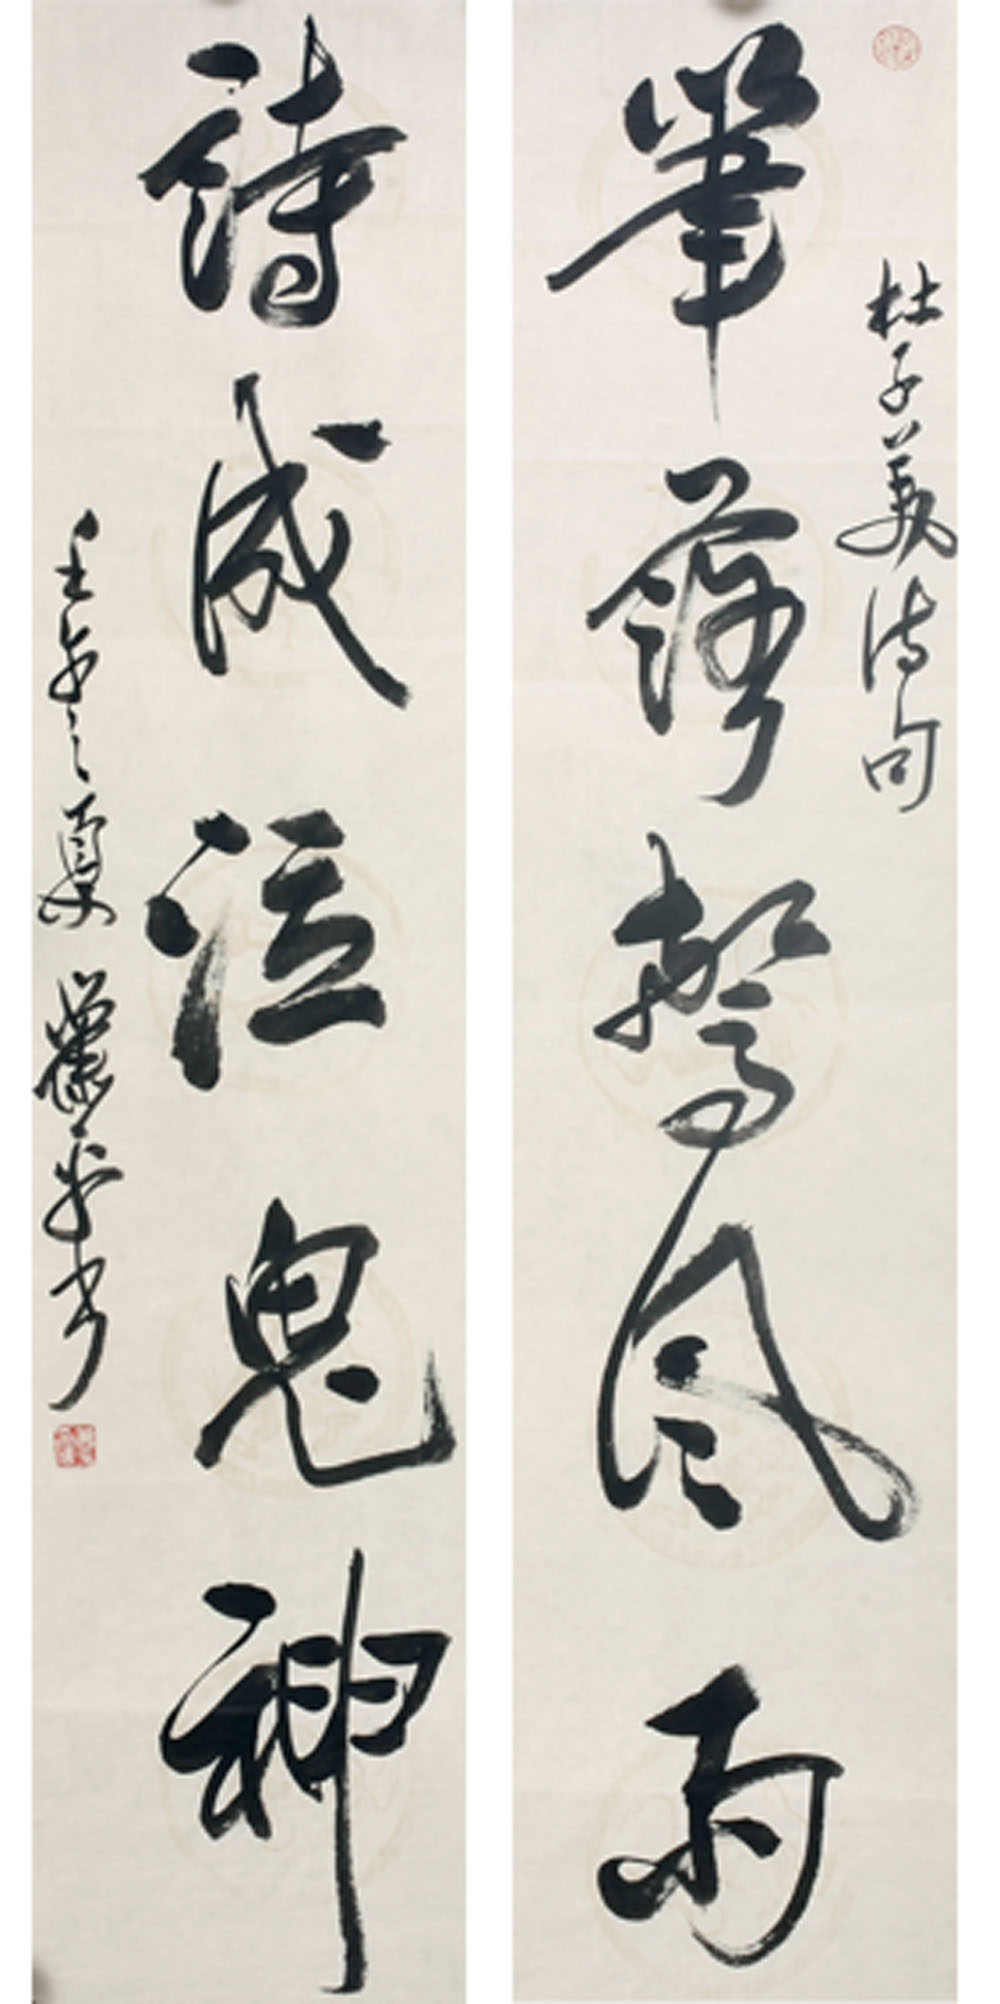 杜子美詩句
筆落驚風雨
詩成泣鬼神
壬午之夏 平書